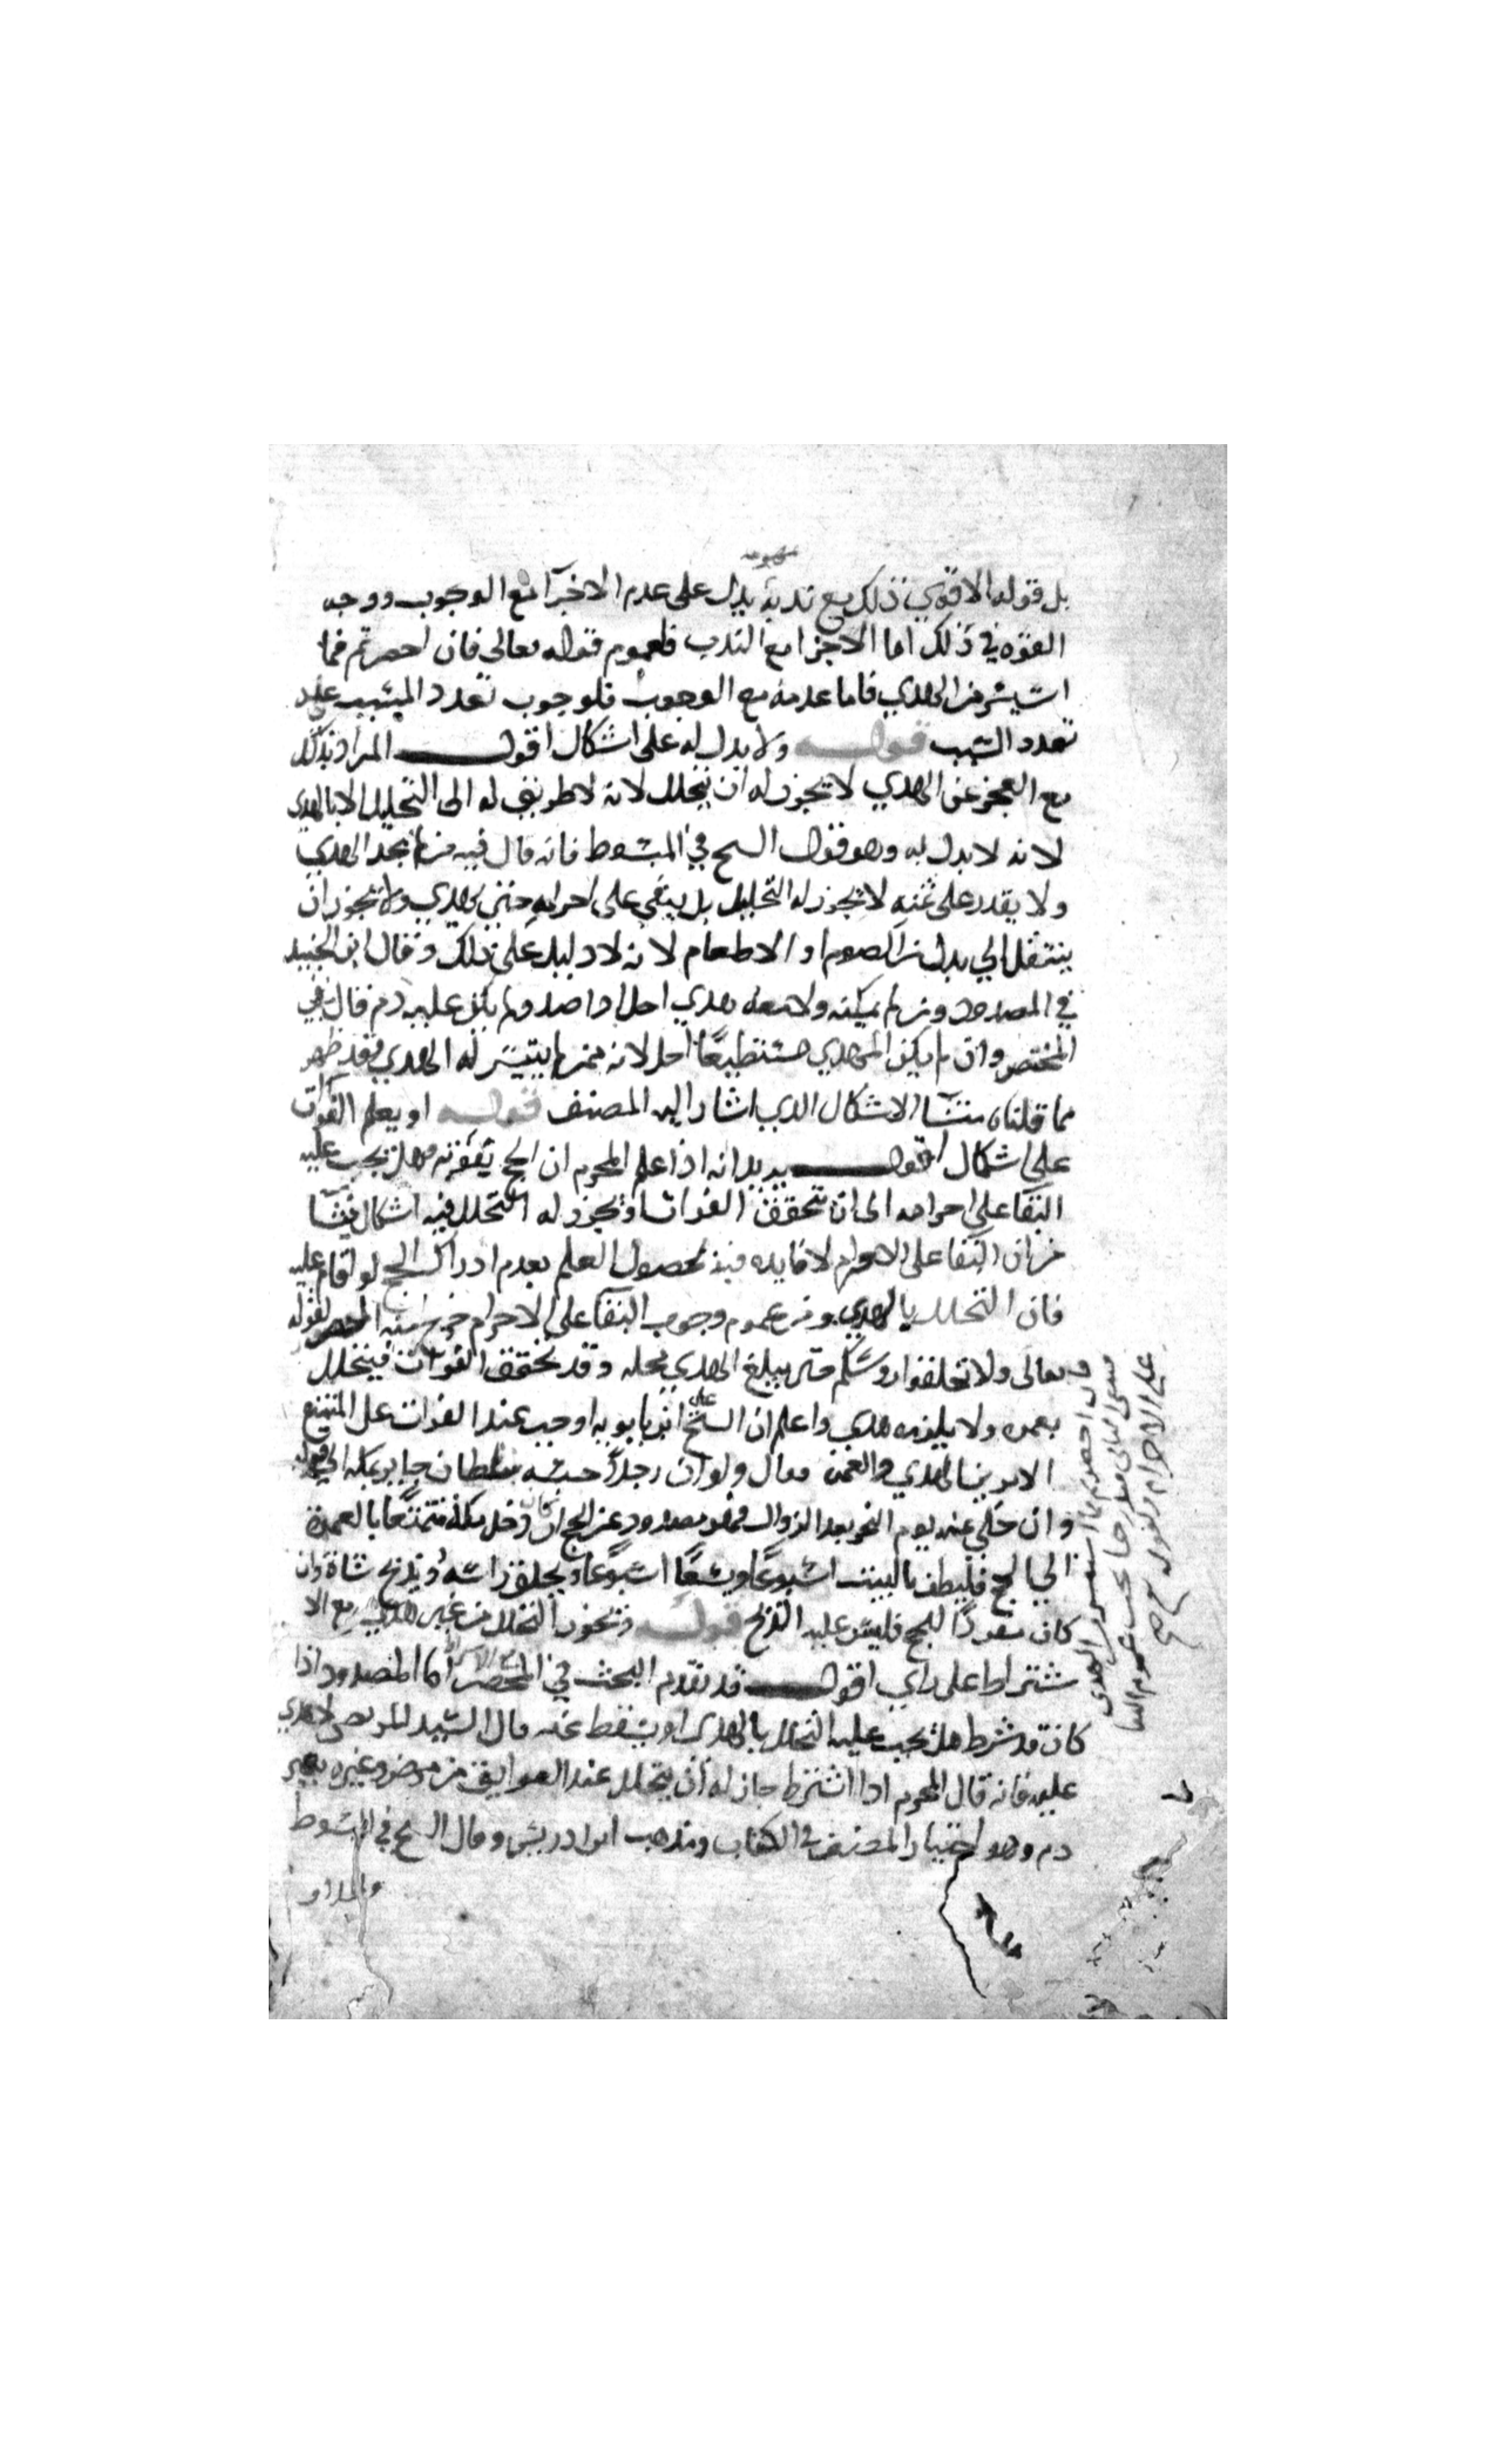 بل قوله الاقوي ذلك مع ندبه يدل على عدم الاجزآ مع الوجوب ووجه
القوه في ذلك اما الاجزا مع الندب فلعموم قوله تعالى فان احصرتم فما
استيسر من الهدي فاما عدمه مع الوجوب فلوجوب تعدد المسبب عند
تعدد السبب قوله ولا بدل له على اشكال اقول المراد بذلك
مع العجز عن الهدي لا يجوز له ان يتحلل لانه لا طريق له الى التحليل الا بالهدي
لانه لا بدل له وهو قول السح في المبسوط فانه قال فيه من لم يجد الهدي
ولا يقدر على ثمنه لا يجوز له التحليل بل يبقي على احرامه حتى يهدي ولا يجوز ان
ينتقل الي بدل من الصوم او الاطعام لانه لا دليل على ذلك وقال ابن الجنيد
في المصدود ومن لم يكن ولا معه هدي احل اذا صد ولم يكن عليه دم قال في
المختصر وان لم يكن المهدي مستطيعًا احل لانه ممن لم يتيسر له الهدي فقد ظهر
مما قلناه منشا الاشكال الدي اشار اليه المصنف قوله او يعلم الفوات
على اشكال اقول يريد انه اذا علم المحرم ان الحج يفوته هل يجب عليه
البقآ على احرامه الى ان يتحقق الفوات او يجوز له التحلل فيه اشكال ينشا
من ان البقا على الاحرام لا فايده فيه لحصول العلم بعدم ادراك الحج لو اقام عليه
فان التحلل بالهدي ومن عموم وجوب البقآ على الاحرام خرج منه المحصر لقوله
تعالى ولا تحلقوا روسكم حتى يبلغ الهدي محله وقد تحقق الفوات فيتحلل
بعمره ولا يلزمه هدي واعلم ان السح على ابن بابويه اوجب عند الفوات على المتمتع
الامرين الهدي والعمره فقال ولو ان رجلاً حبسه سلطان جاير بمكه الى
وان خلي عنه يوم النحر بعد الزوال فهو مصدود عن الحج ان كان دخل مكة متمتعًا بالعمرة
الي الحج فليطف بالبيت اسبوعًا ويسعًا اسبوعًا ويحلق راسه ويذبح شاة وان
كان مفردًا للحج فليس عليه الذبح قوله ويجوز التحلل من غير هدي مع الا
شتراط على راي اقول قد تقدم البحث في المحصر اما المصدود اذا
كان قد شرط هل يجب عليه التحلل بالهدي او يسقط عنه قال السيد المرتضى لا هدي
عليه فانه قال المحرم اذا اشترط جاز له ان يتحلل عند العوايق من مرض وغيره بغير
دم وهو اختيار المصنف في الكتاب ومذهب ابن ادريس وقال السح في المبسوط